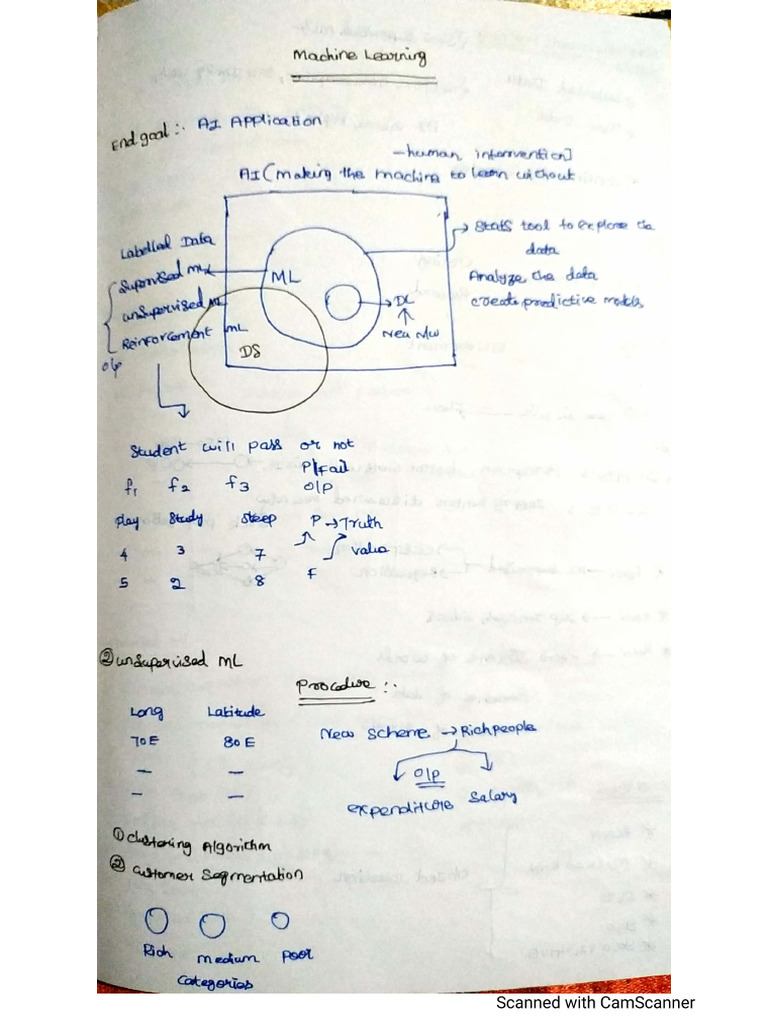 Machine Learning
End goal :- AI Application
-human intervention]
AI (Making the machine to learn without
Labelled Data
Supervised ML
unsupervised ML
Reinforcement ML
O/p
ML
DL
Neu N/w
DS
Stats tool to explore the
data
Analyze the data
create predictive models
Student will pass or not
P/Fail
f1 f2 f3 O/P
play study sleep P → Truth
value
4 3 7
5 2 8 F
② unsupervised ML
Procedure :-
Long Latitude
70E 80E
— —
— —
New Scheme → Rich people
O/p
expenditure Salary
① clustering Algorithm
② customer Segmentation
Rich medium poor
Categories
Scanned with CamScanner